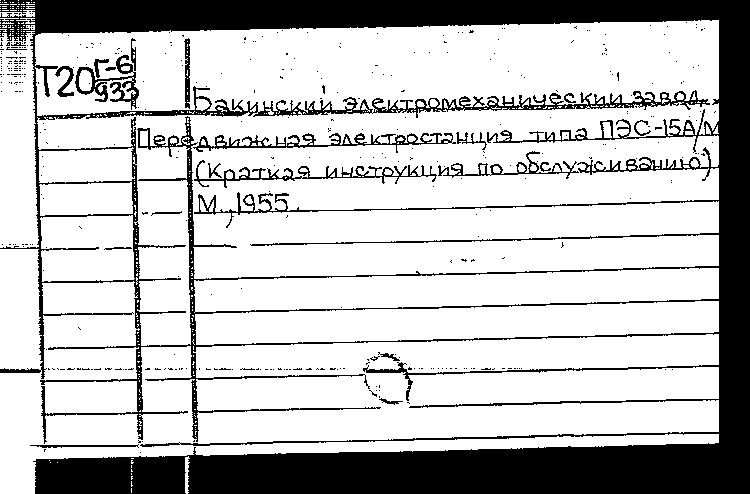 Т20 Г-6
933
Бакинский электромеханический завод.
Передвижная электростанция типа ПЭС-15А/М
(Краткая инструкция по обслуживанию)
М., 1955.